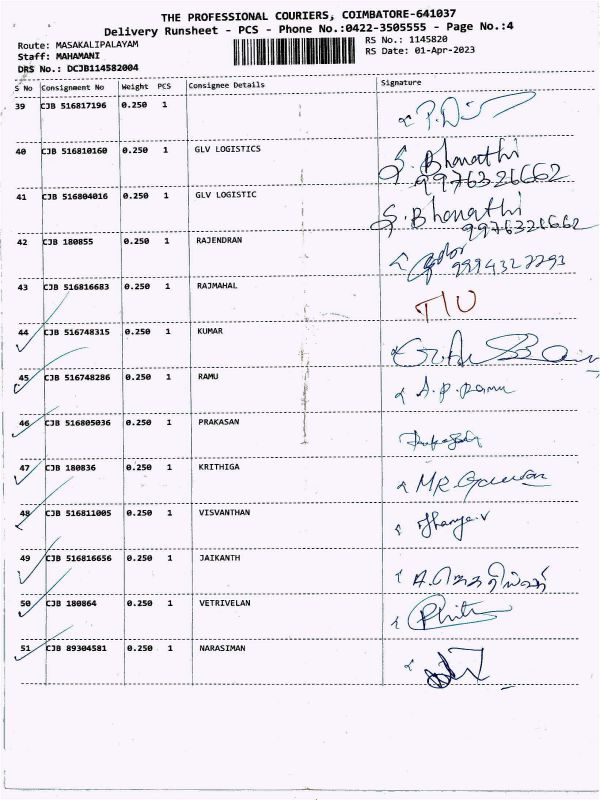 THE PROFESSIONAL COURIERS, COIMBATORE-641037
Delivery Runsheet - PCS - Phone No.:0422-3505555 - Page No.:4
Route: MASAKALIPALAYAM
Staff: MAHAMANI
DRS No.: DCJB114582004
RS No.: 1145820
RS Date: 01-Apr-2023
S No Consignment No Weight PCS Consignee Details Signature
39 CJB 516817196 0.250 1
40 CJB 516810160 0.250 1 GLV LOGISTICS S. Bharathi
9976326662
41 CJB 516804016 0.250 1 GLV LOGISTIC S. Bharathi
9976326662
42 CJB 180855 0.250 1 RAJENDRAN
43 CJB 516816683 0.250 1 RAJMAHAL T/U
44 CJB 516748315 0.250 1 KUMAR
45 CJB 516748286 0.250 1 RAMU A.P. Ramu
46 CJB 516805036 0.250 1 PRAKASAN
47 CJB 180836 0.250 1 KRITHIGA
48 CJB 516811005 0.250 1 VISVANTHAN
49 CJB 516816656 0.250 1 JAIKANTH
50 CJB 180864 0.250 1 VETRIVELAN
51 CJB 89304581 0.250 1 NARASIMAN